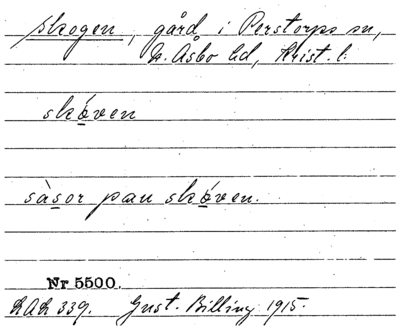 Skogen, gård i Perstorps sn,
N. Åsbo hd, Krist. l.
sköven
såsor pan sköven.
Nr 5500.
LAL 339. Gust. Billing 1915.